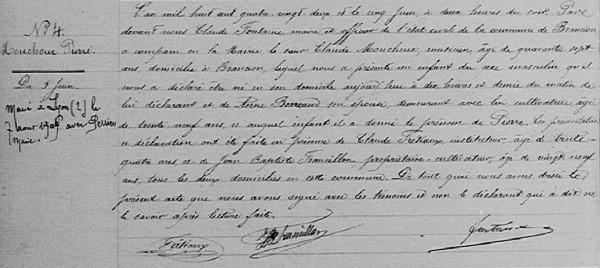 N° 4.
Moucheux Pierre.
Du 5 Juin
Marié à Lyon (2e) le
7 août 1909 avec Perrier
Marie.
L'an mil huit cent quatre vingt deux et le cinq Juin, à deux heures du soir. Par
devant nous Claude Fontaine, maire et officier de l'état civil de la commune de Brancion
a comparu en la Mairie le sieur Claude Moucheux, musicien, âgé de quarante sept
ans, domicilié à Brancion, lequel nous a présenté un enfant du sexe masculin qu'il
nous a déclaré être né en son domicile aujourd'hui à dix heures et demie du matin de
lui déclarant et de Reine Bonnaud son épouse, demeurant avec lui cultivatrice âgée
de trente neuf ans, et auquel enfant il a donné le prénom de Pierre. Les présentation
et déclaration ont été faites en présence de Claude instituteur, âgé de trente
quatre ans et de Jean Baptiste Francillon propriétaire-cultivateur, âgé de vingt neuf
ans, tous les deux domiciliés en cette commune. De tout quoi nous avons dressé le
présent acte que nous avons signé avec les témoins et non le déclarant qui a dit ne
le savoir après lecture faite.
Francillon